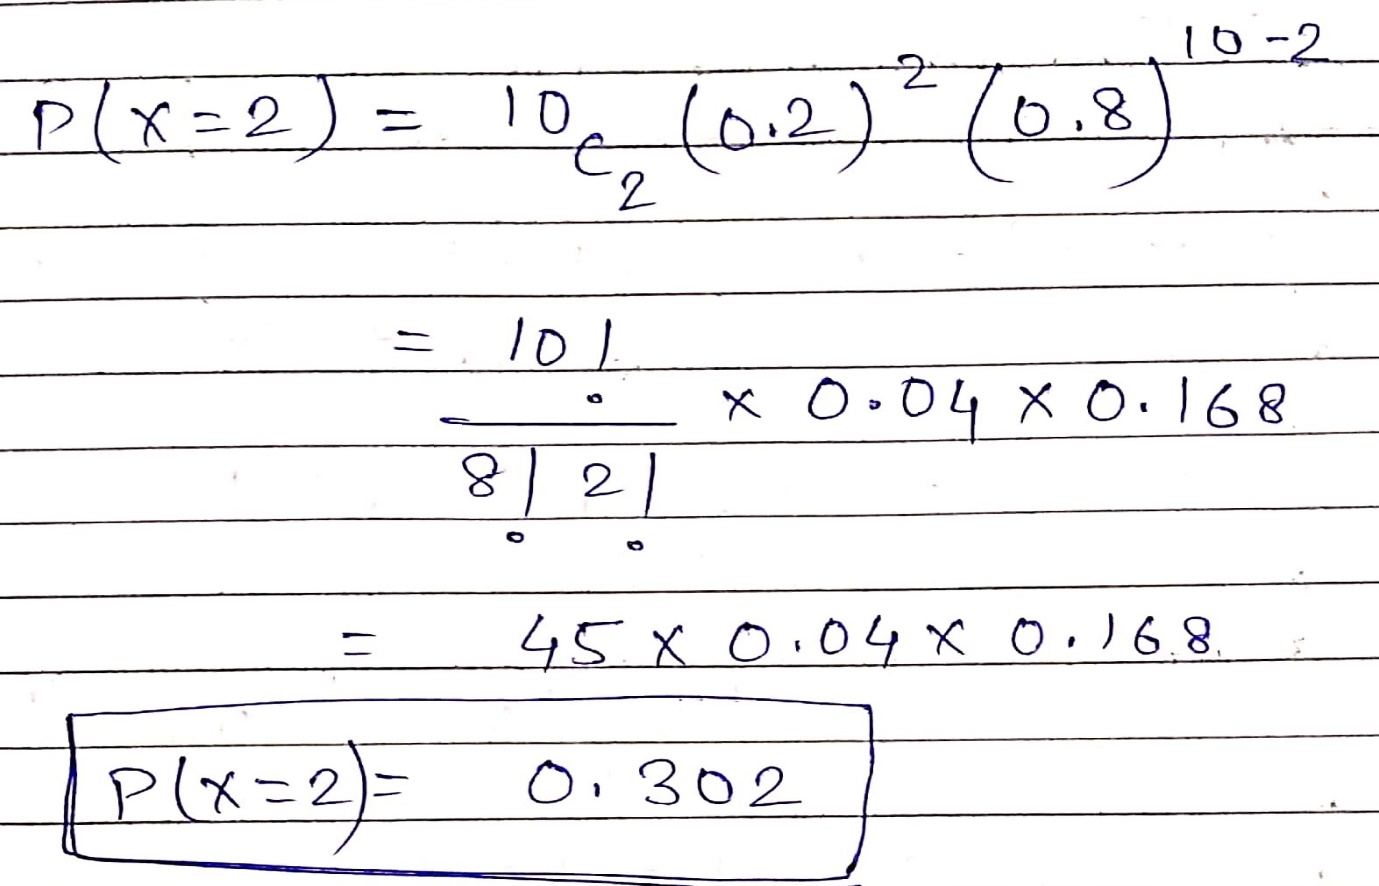 P(x=2) = 10C₂ (0.2)² (0.8)¹⁰⁻²
= 10! / 8! 2! × 0.04 × 0.168
= 45 × 0.04 × 0.168
P(x=2)= 0.302